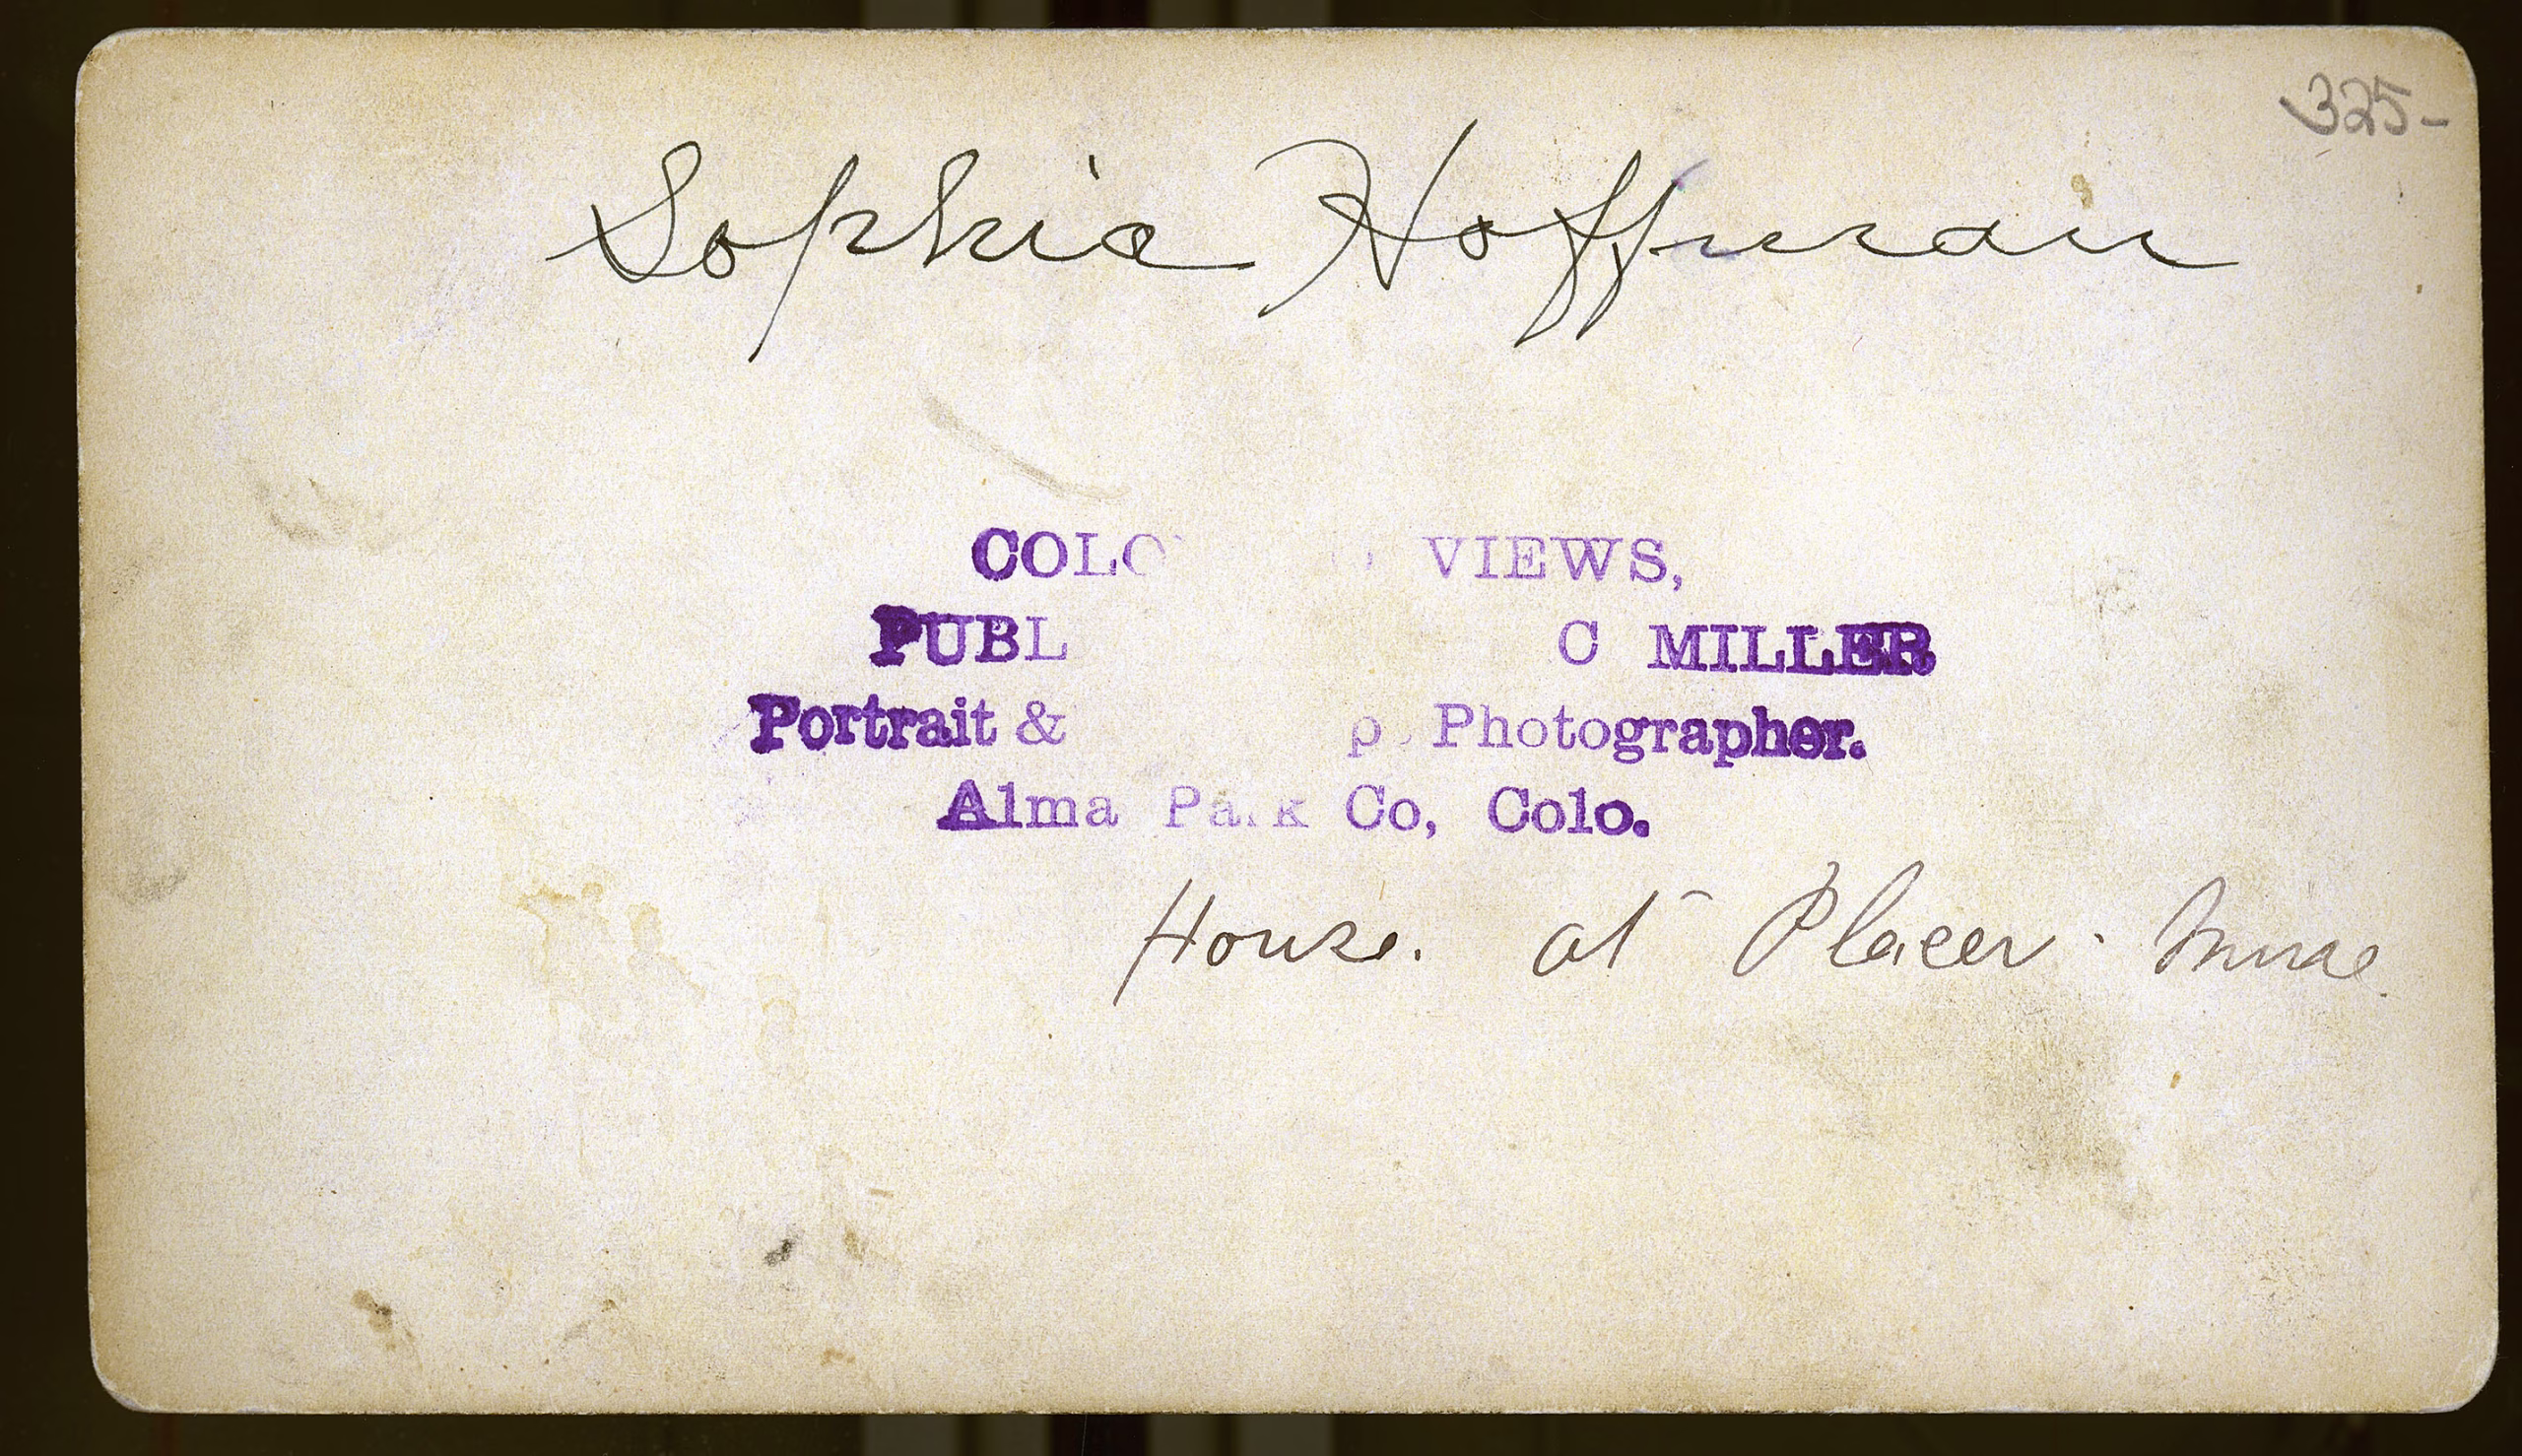 325-
Sophia Hoffman
COLO VIEWS,
PUBL C MILLER
Portrait & p. Photographer.
Alma Park Co, Colo.
House. at Placer. Mine